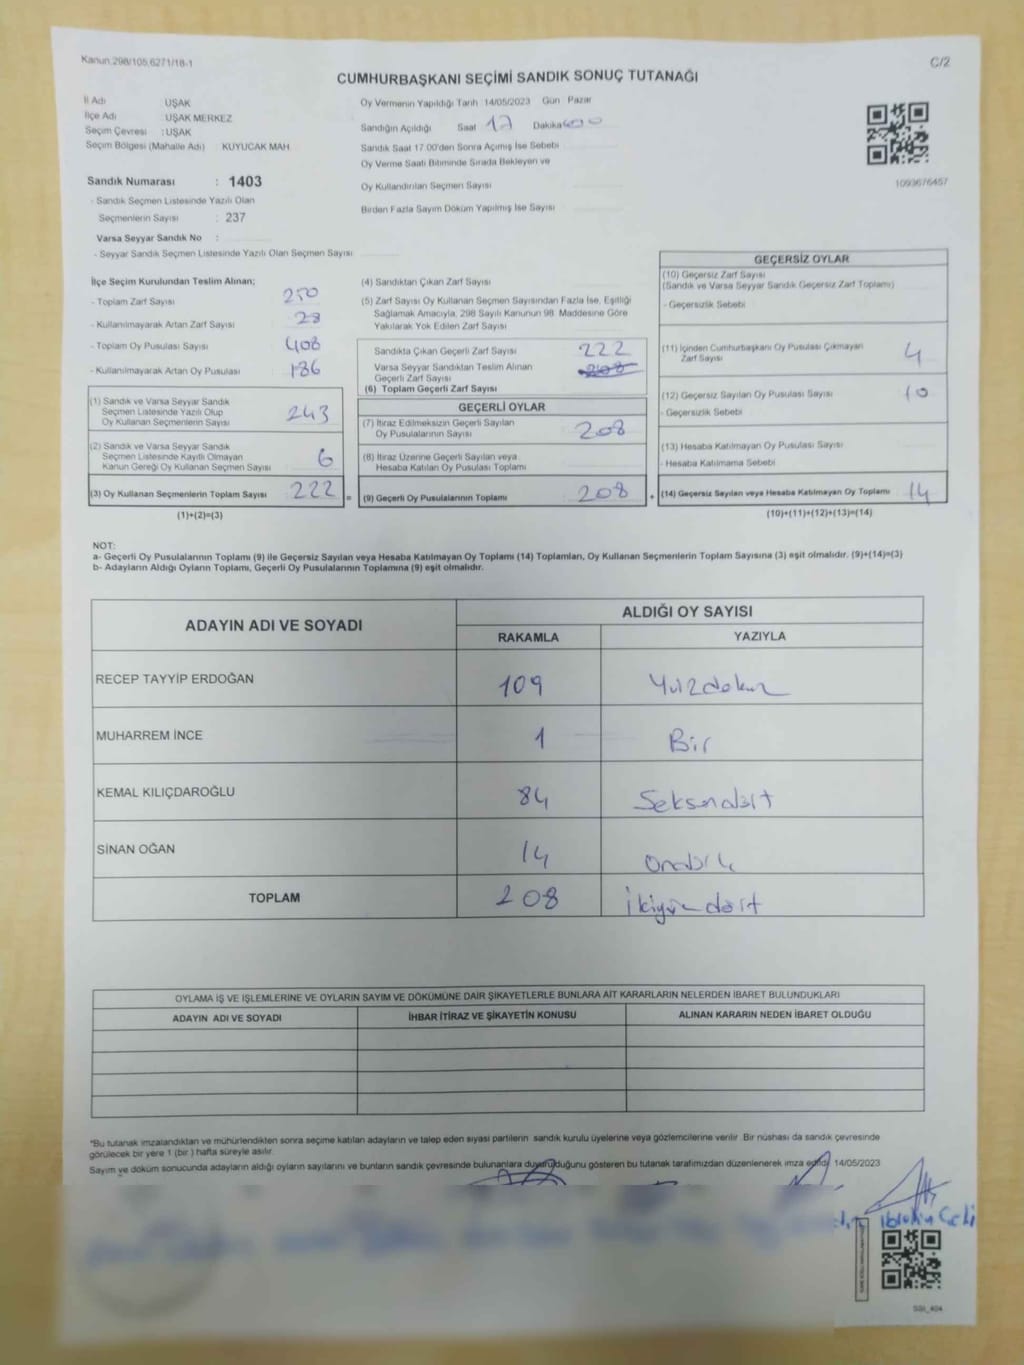 Kanun.298/105,6271/18-1
C/2
CUMHURBAŞKANI SEÇİMİ SANDIK SONUÇ TUTANAĞI
İl Adı UŞAK
İlçe Adı UŞAK MERKEZ
Seçim Çevresi : UŞAK
Seçim Bölgesi (Mahalle Adı) KUYUCAK MAH
Oy Vermenin Yapıldığı Tarih 14/05/2023 Gün Pazar
Sandığın Açıldığı Saat 17 Dakika
Sandık Saat 17.00'den Sonra Açımış İse Sebebi
Oy Verme Saati Bitiminde Sırada Bekleyen ve
Oy Kullandırılan Seçmen Sayısı
Birden Fazla Sayım Döküm Yapılmış İse Sayısı
1093676457
Sandık Numarası : 1403
- Sandık Seçmen Listesinde Yazılı Olan
Seçmenlerin Sayısı : 237
Varsa Seyyar Sandık No :
- Seyyar Sandık Seçmen Listesinde Yazılı Olan Seçmen Sayısı
İlçe Seçim Kurulundan Teslim Alınan;
- Toplam Zarf Sayısı 250
- Kullanılmayarak Artan Zarf Sayısı 28
- Toplam Oy Pusulası Sayısı 408
- Kullanılmayarak Artan Oy Pusulası 186
(1) Sandık ve Varsa Seyyar Sandık
Seçmen Listesinde Yazılı Olup
Oy Kullanan Seçmenlerin Sayısı 243
(2) Sandık ve Varsa Seyyar Sandık
Seçmen Listesinde Kayıtlı Olmayan
Kanun Gereği Oy Kullanan Seçmen Sayısı 6
(3) Oy Kullanan Seçmenlerin Toplam Sayısı 222 =
(1)+(2)=(3)
(4) Sandıktan Çıkan Zarf Sayısı
(5) Zarf Sayısı Oy Kullanan Seçmen Sayısından Fazla İse, Eşitliği
Sağlamak Amacıyla, 298 Sayılı Kanunun 98. Maddesine Göre
Yakılarak Yok Edilen Zarf Sayısı
Sandıkta Çıkan Geçerli Zarf Sayısı 222
Varsa Seyyar Sandıktan Teslim Alınan 208
Geçerli Zarf Sayısı
(6) Toplam Geçerli Zarf Sayısı
GEÇERLİ OYLAR
(7) İtiraz Edilmeksizin Geçerli Sayılan
Oy Pusulalarının Sayısı 208
(8) İtiraz Üzerine Geçerli Sayılan veya
Hesaba Katılan Oy Pusulası Toplamı
(9) Geçerli Oy Pusulalarının Toplamı 208 +
GEÇERSİZ OYLAR
(10) Geçersiz Zarf Sayısı
(Sandık ve Varsa Seyyar Sandık Geçersiz Zarf Toplamı)
- Geçersizlik Sebebi
(11) İçinden Cumhurbaşkanı Oy Pusulası Çıkmayan
Zarf Sayısı 4
(12) Geçersiz Sayılan Oy Pusulası Sayısı 10
- Geçersizlik Sebebi
(13) Hesaba Katılmayan Oy Pusulası Sayısı
- Hesaba Katılmama Sebebi
(14) Geçersiz Sayılan veya Hesaba Katılmayan Oy Toplamı 14
(10)+(11)+(12)+(13)=(14)
NOT:
a- Geçerli Oy Pusulalarının Toplamı (9) ile Geçersiz Sayılan veya Hesaba Katılmayan Oy Toplamı (14) Toplamları, Oy Kullanan Seçmenlerin Toplam Sayısına (3) eşit olmalıdır. (9)+(14)=(3)
b- Adayların Aldığı Oyların Toplamı, Geçerli Oy Pusulalarının Toplamına (9) eşit olmalıdır.
ADAYIN ADI VE SOYADI
ALDIĞI OY SAYISI
RAKAMLA YAZIYLA
RECEP TAYYİP ERDOĞAN 109 Yüzdokuz
MUHARREM İNCE 1 Bir
KEMAL KILIÇDAROĞLU 84 Seksendört
SİNAN OĞAN 14 Ondört
TOPLAM 208 İkiyüzdört
OYLAMA İŞ VE İŞLEMLERİNE VE OYLARIN SAYIM VE DÖKÜMÜNE DAİR ŞİKAYETLERLE BUNLARA AİT KARARLARIN NELERDEN İBARET BULUNDUKLARI
ADAYIN ADI VE SOYADI İHBAR İTİRAZ VE ŞİKAYETİN KONUSU ALINAN KARARIN NEDEN İBARET OLDUĞU
*Bu tutanak imzalandıktan ve mühürlendikten sonra seçime katılan adayların ve talep eden siyasi partilerin sandık kurulu üyelerine veya gözlemcilerine verilir. Bir nüshası da sandık çevresinde
görülecek bir yere 1 (bir ) hafta süreyle asılır.
Sayım ve döküm sonucunda adayların aldığı oyların sayılarını ve bunların sandık çevresinde bulunanlara duyurulduğunu gösteren bu tutanak tarafımızdan düzenlenerek imza edildi. 14/05/2023